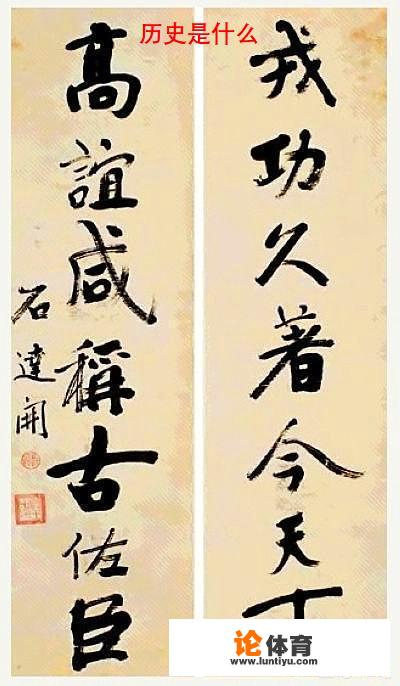 历史是什么
戎功久著今天
髙誼咸稱古佐臣
石達開
论体育
www.luntiyu.com